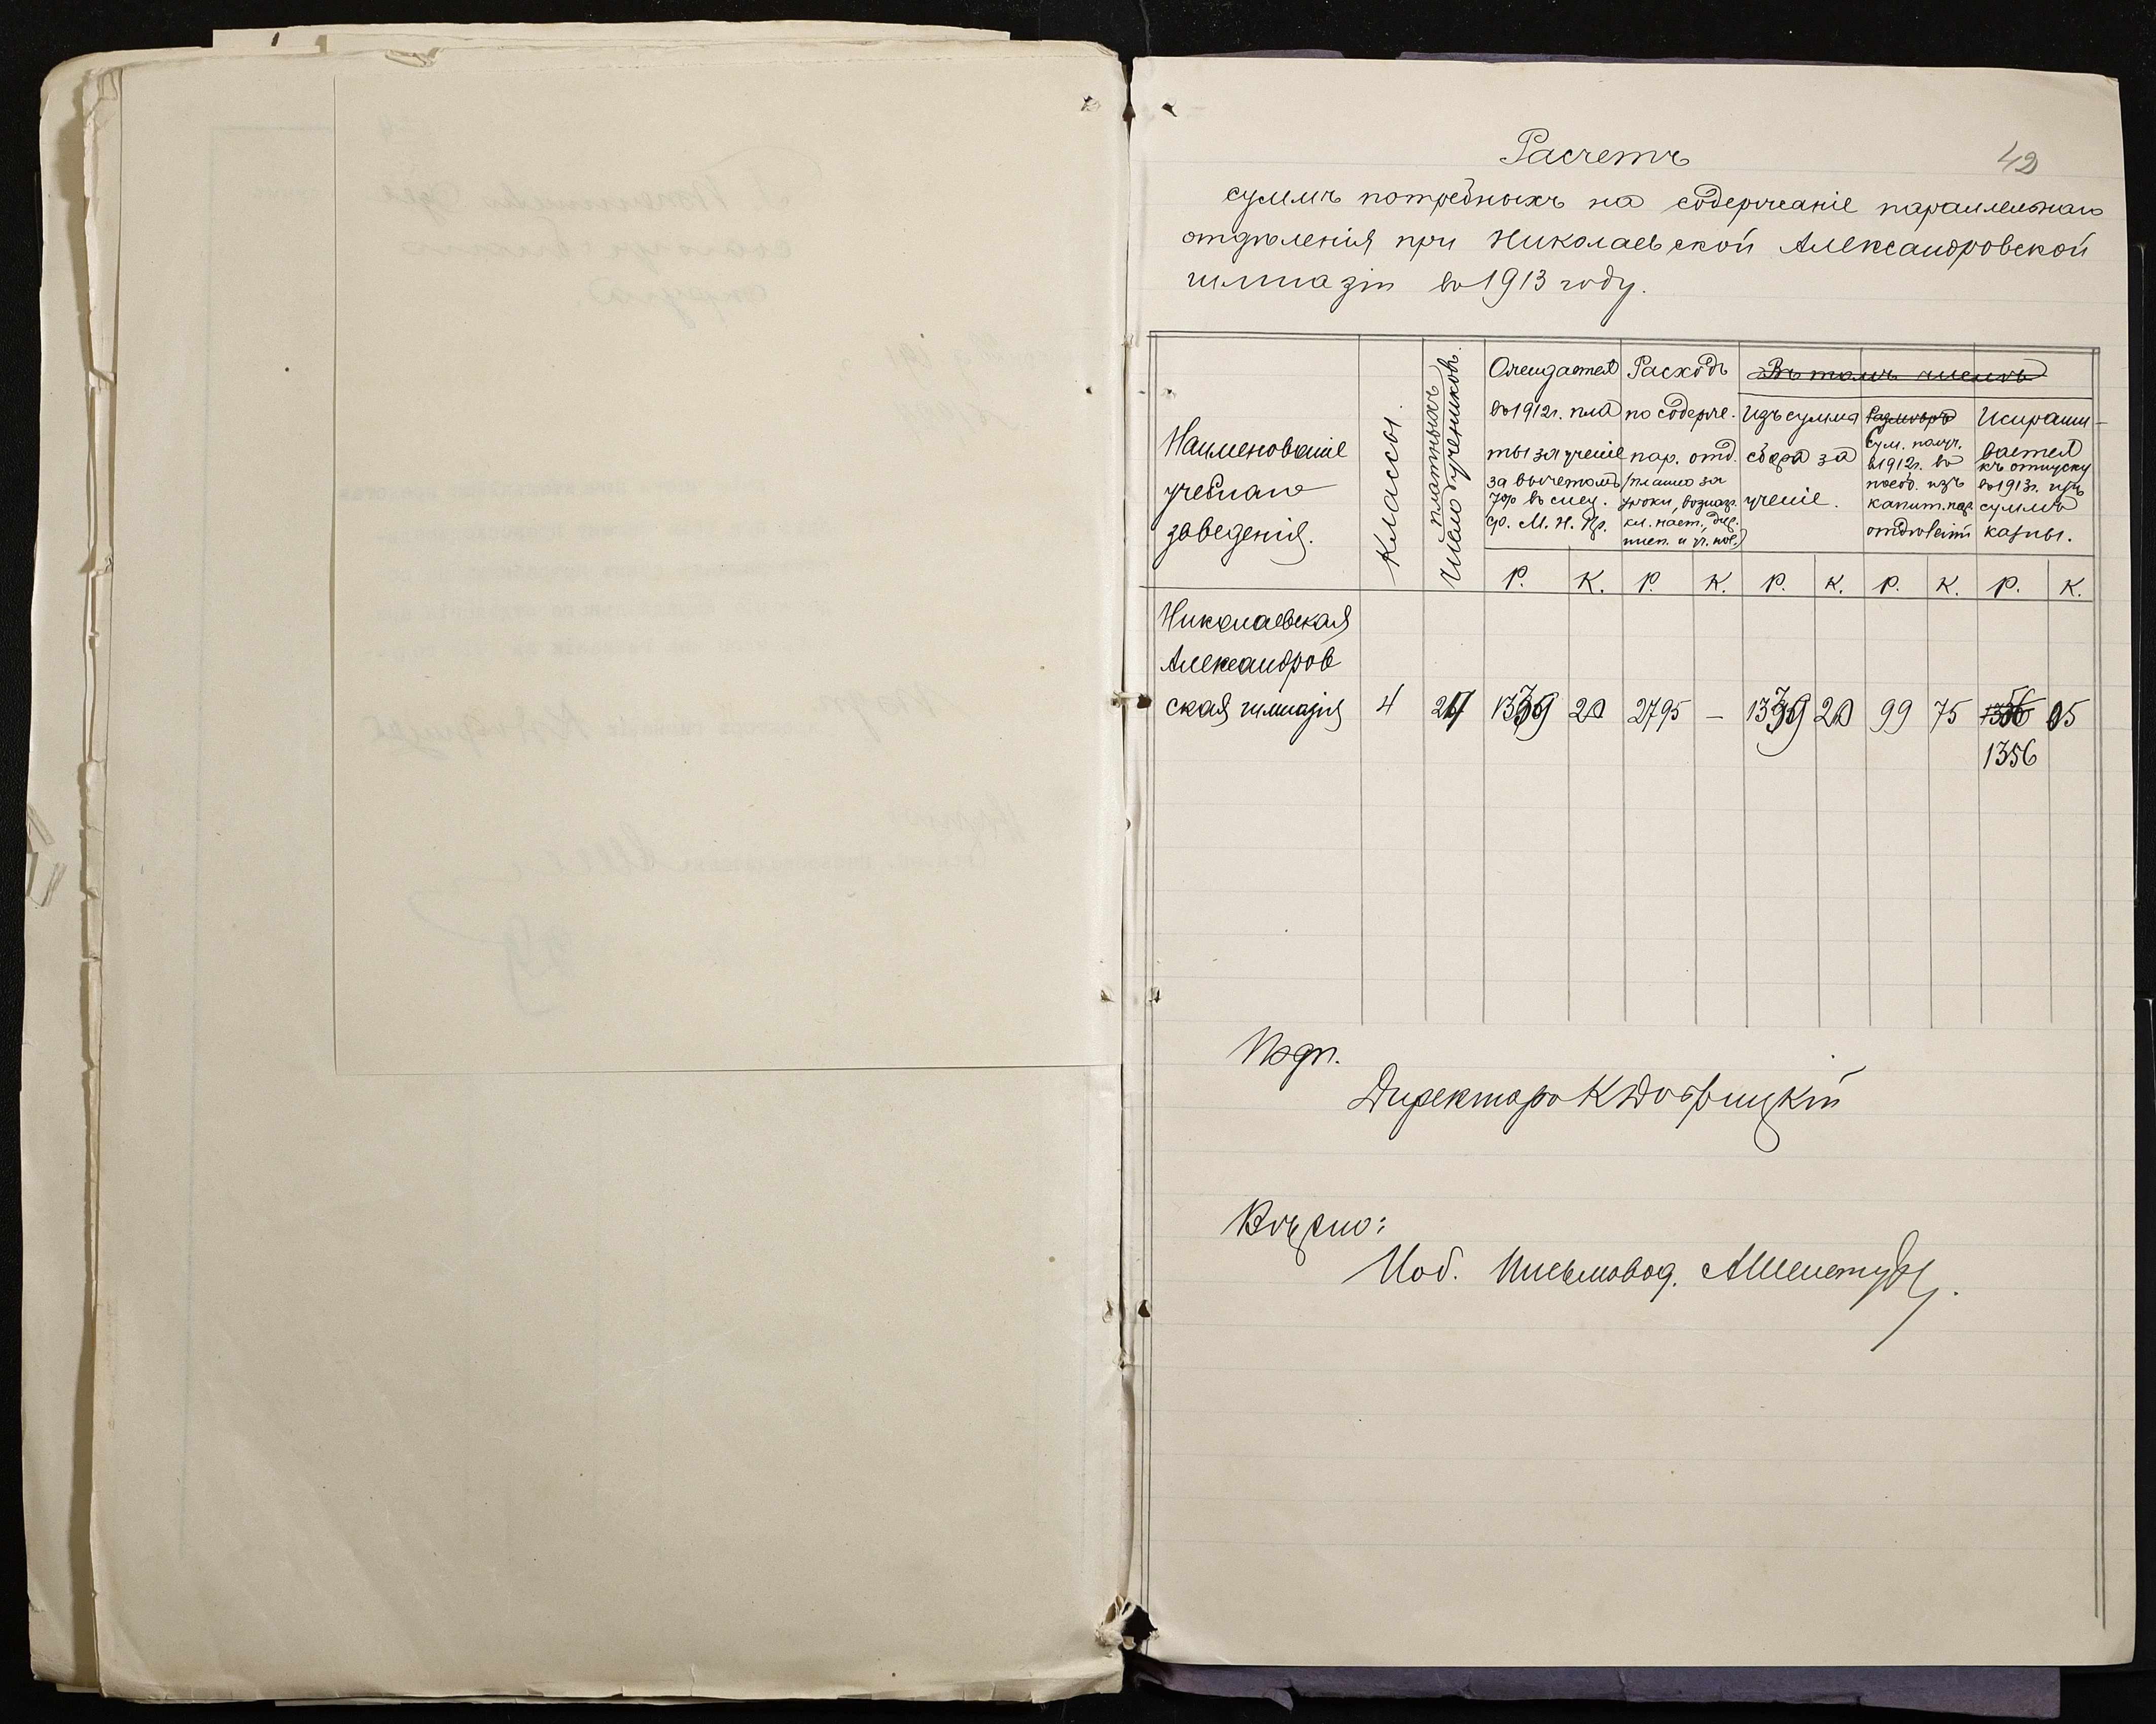 42
Расчетъ
суммъ потребныхъ на содержаніе параллельнаго
отдѣленія при Николаевской Александровской
гимназіи въ 1913 году.
Наименованіе
учебнаго
заведенія.
Классы.
Число платныхъ
учениковъ.
Ожидается
въ 1912 г. пла
ты за ученіе
за вычетомъ
7% въ спец.
ср. М. Н. Пр.
Расходъ
по содерж.
пар. отд.
(плата за
уроки, вознагр.
кл. наст.,
Въ томъ числѣ
Изъ суммъ
сбора за
ученіе.
Размѣръ
сум. получ.
въ 1912 г. въ
пособ. изъ
капит. пар.
отдѣленій
Испраши-
вается
къ отпуску
въ 1913 г. изъ
суммъ
казны.
р. к. р. к. р. к. р. к. р. к.
Николаевская
Александров
ская гимназія 4 1339 20 2795 — 1339 20 99 75 1356 05
1356
Подп.
Директоръ
Вѣрно:
Исб. Письмовод.